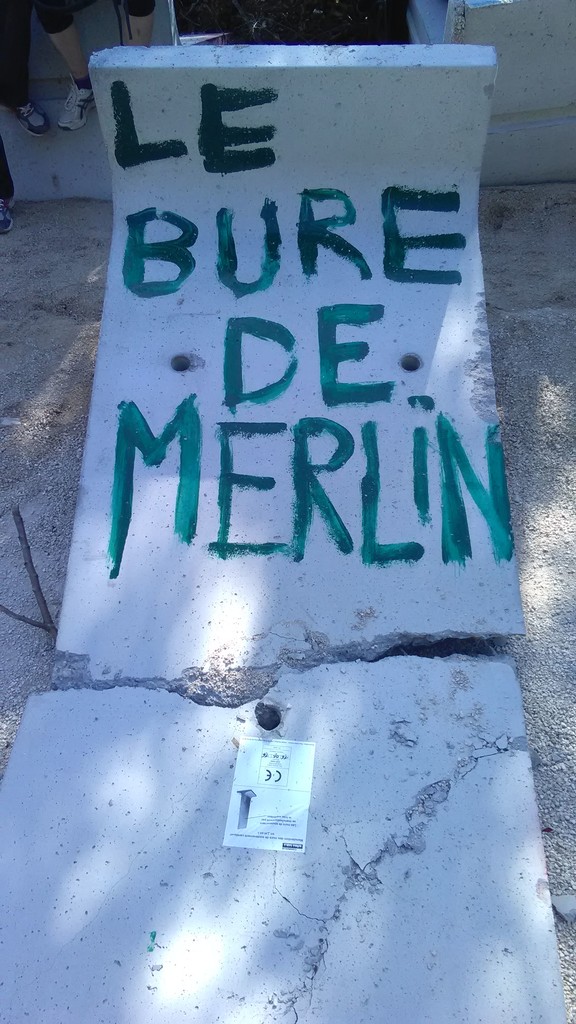 LE
BURE
DE
MERLIN
CE